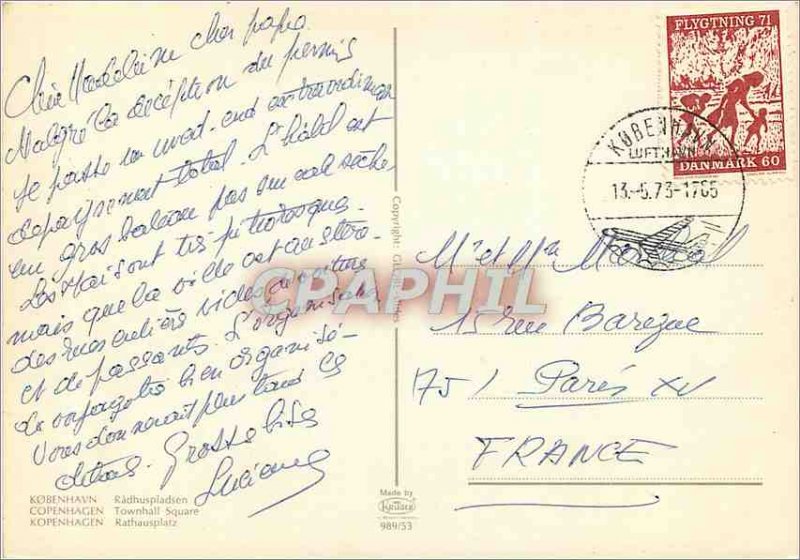 Chère Madeleine cher papa
Malgré la déception du permis
je passe un week-end extraordinaire
dépaysement total. L'hôtel est
un gros bateau pas un cal sèche
Les Mais sont très pittoresques
mais que la ville est austère
des rues entières vides de voitures
et de passants. L'organisation
de voyage très bien organisé
Vous donnerait plus tard les
détails. Grosse bise
Lucienne
KØBENHAVN Rådhuspladsen
COPENHAGEN Townhall Square
KOPENHAGEN Rathausplatz
Made by
Krüger
989/53
Copyright:
CPAPHIL
FLYGTNING 71
DANMARK 60
KØBENHAVN
LUFTHAVN
13.-5.73-17
Mr et Mme
15 rue Barezue
75 / Paris XV
FRANCE